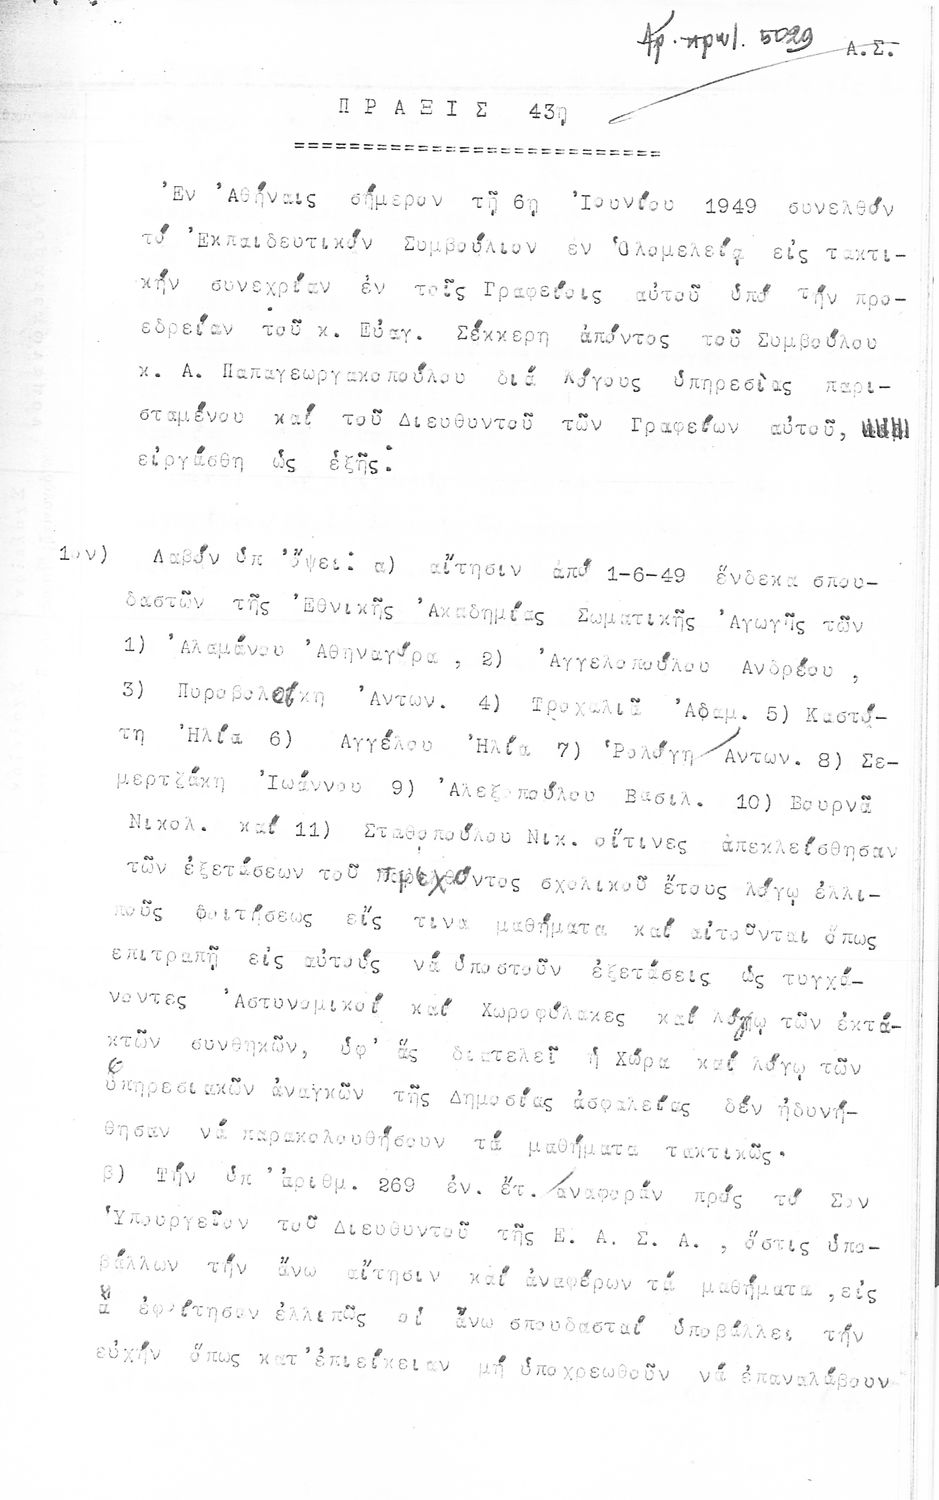 Ἀρ. πρωτ. 5029
Α.Σ.
ΠΡΑΞΙΣ 43η
Ἐν Ἀθήναις σήμερον τῇ 6η Ἰουνίου 1949 συνελθόν
τό Ἐκπαιδευτικόν Συμβούλιον ἐν Ὁλομελείᾳ εἰς τακτι-
κήν συνεχρίαν ἐν τοῖς Γραφείοις αὐτοῦ ὑπό τήν προ-
εδρείαν τοῦ κ. Εὐαγ. Σέκκερη ἀπόντος τοῦ Συμβούλου
κ. Α. Παπαγεωργακοπούλου διά λόγους ὑπηρεσίας παρι-
σταμένου καί τοῦ Διευθυντοῦ τῶν Γραφείων αὐτοῦ,
εἰργάσθη ὡς ἑξῆς:
1ον) Λαβόν ὑπ' ὄψει: α) αἴτησιν ἀπό 1-6-49 ἕνδεκα σπου-
δαστῶν τῆς Ἐθνικῆς Ἀκαδημίας Σωματικῆς Ἀγωγῆς τῶν
1) Ἀλαμάνου Ἀθηναγόρα, 2) Ἀγγελοπούλου Ανδρέου,
3) Πυροβολάκη Ἀντων. 4) Τροχαλιᾶ Ἀδαμ. 5) Καστό-
τη Ἠλία 6) Αγγέλου Ἠλία 7) Ῥολόγη Αντων. 8) Σε-
μερτζάκη Ἰωάννου 9) Ἀλεξοπούλου Βασιλ. 10) Βουρνᾶ
Νικολ. καί 11) Σταθοπούλου Νικ. οἵτινες ἀπεκλείσθησαν
τῶν ἐξετάσεων τοῦ τρέχοντος σχολικοῦ ἔτους λόγῳ ἐλλι-
ποῦς φοιτήσεως εἴς τινα μαθήματα καί αἰτοῦνται ὅπως
ἐπιτραπῇ εἰς αὐτούς νά ὑποστοῦν ἐξετάσεις ὡς τυγχά-
νοντες Ἀστυνομικοί καί Χωροφύλακες καί λόγῳ τῶν ἐκτά-
κτῶν συνθηκῶν, ὑφ' ἅς διατελεῖ ἡ Χώρα καί λόγῳ τῶν
ὑπηρεσιακῶν ἀναγκῶν τῆς Δημοσίας ἀσφαλείας δέν ἠδυνή-
θησαν νά παρακολουθήσουν τά μαθήματα τακτικῶς.
β) Τήν ὑπ' ἀριθμ. 269 ἐν. ἔτ. ἀναφοράν πρός τό Σον
Ὑπουργεῖον τοῦ Διευθυντοῦ τῆς Ε. Α. Σ. Α., ὅστις ὑπο-
βάλλων τήν ἄνω αἴτησιν καί ἀναφέρων τά μαθήματα, εἰς
ἅ ἐφοίτησαν ἐλλιπῶς οἱ ἄνω σπουδασταί ὑποβάλλει τήν
εὐχήν ὅπως κατ' ἐπιείκειαν μή ὑποχρεωθοῦν νά ἐπαναλάβουν